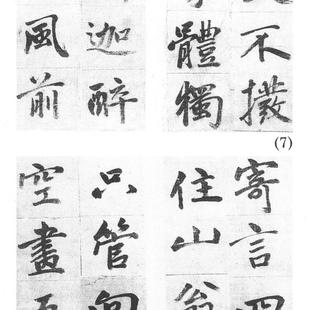 不撥
體獨
迦醉
風前
(7)
寄言
住山翁
只管
空畫